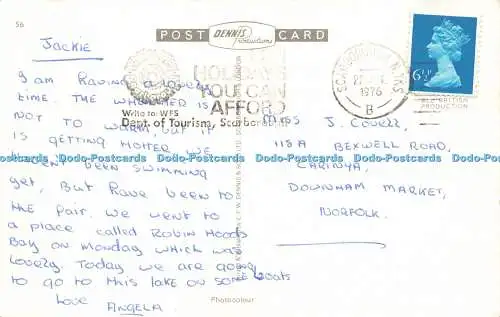 56
POST DENNIS Productions CARD
Jackie
I am Having a lovely
time. The whole is
not to warm but it
is getting hotter we
haven't been swimming
yet, But Have been to
the fair. We went to
a place called Robin Hoods
Bay on Monday which was
lovely. Today we are going
to go to this lake on some boats
Love Angela
HOLIDAYS
YOU CAN
AFFORD
Write to: WFS
Dept. of Tourism, Scarborough
SCARBOROUGH N. YKS
1976
B
6½P
BRITISH
PRODUCTION
Miss J. Covell
118A BEXWELL ROAD,
CARINYA,
DOWNHAM MARKET,
NORFOLK.
LONDON
Photocolour
Dodo-Postcards Dodo-Postcards Dodo-Postcards Dodo-Postcards Dodo-Postcards Dodo-Postcards